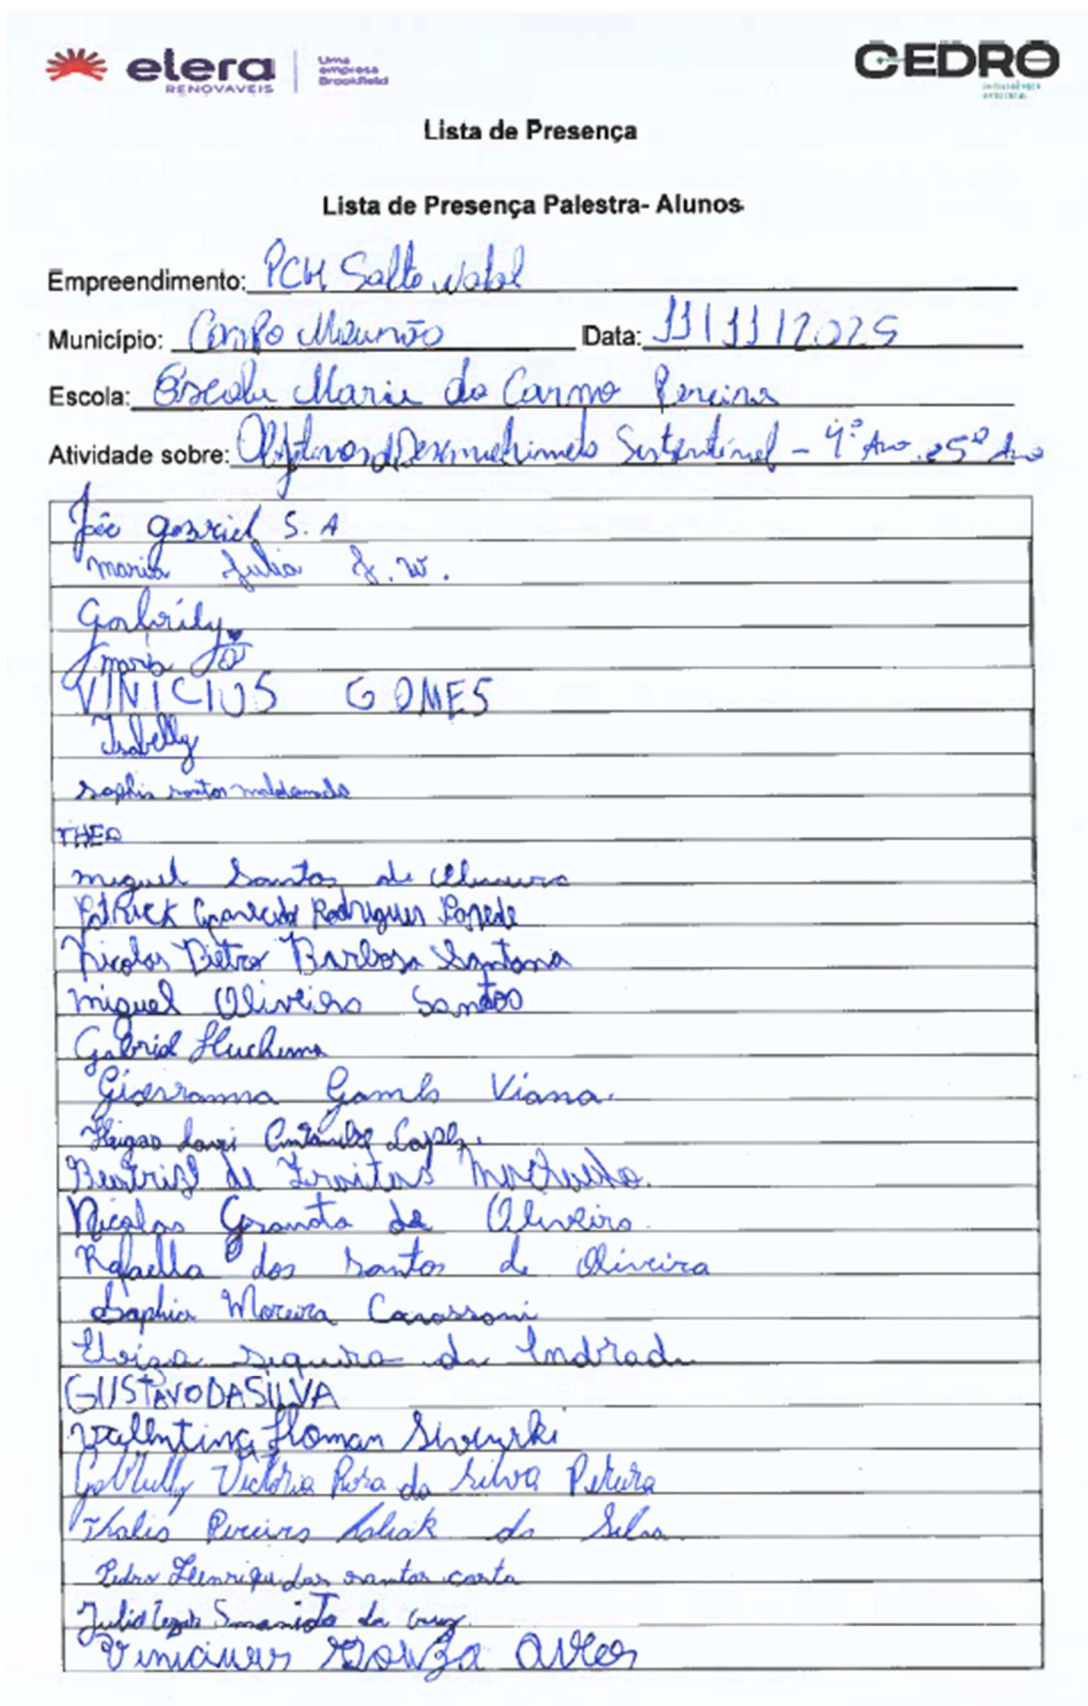 elera
RENOVÁVEIS
Uma
empresa
Brookfield
CEDRO
Lista de Presença
Lista de Presença Palestra- Alunos
Empreendimento: PCH Salto Natal
Município: Campo Mourão Data: 11/11/2025
Escola: Escola Maria do Carmo Pereira
Atividade sobre: Objetivos de Desenvolvimento Sustentável - 4º Ano e 5º Ano
gabriel S. A
maria Julia F. W.
Gabrily
maria
VINICIUS GOMES
Isabelly
Sophia santos maldonado
THEO
miguel Santos de Oliveira
PATRICK Aparecido Rodrigues
Nicolas Pietro Barbosa Santana
miguel Oliveira Santos
Gabriel
Giovanna Viana.
Lopes.
de Freitas Machado.
Nicolas de Oliveira
Rafaella dos santos de Oliveira
Sophia Moreira
Eloiza siqueira de Andrade
GUSTAVO DA SILVA
Vallentina Homan
Victória Rosa da Silva Pereira
Pereira da Silva
Pedro Henrique dos santos costa
Julio da Cruz
Souza